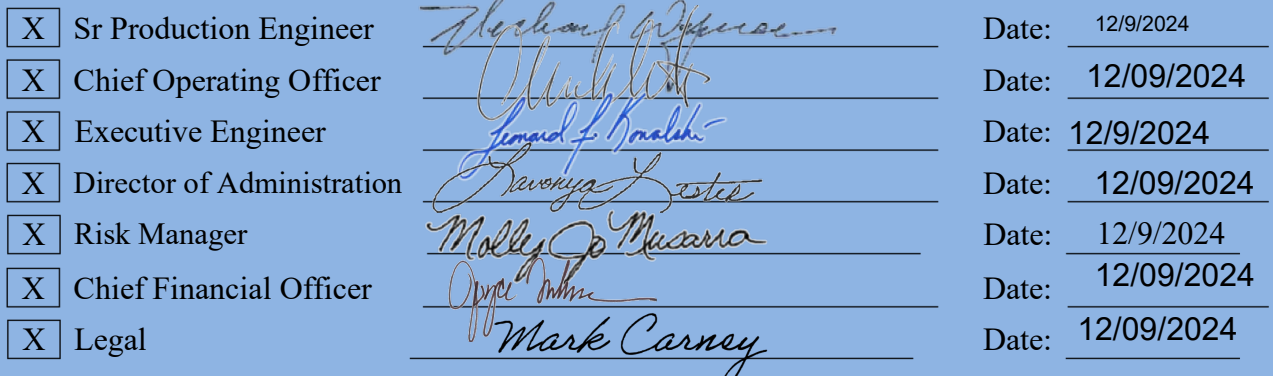 X Sr Production Engineer Date: 12/9/2024
X Chief Operating Officer Date: 12/09/2024
X Executive Engineer Leonard F. Kowalski Date: 12/9/2024
X Director of Administration Lavonya Lester Date: 12/09/2024
X Risk Manager Molly Jo Musarra Date: 12/9/2024
X Chief Financial Officer Date: 12/09/2024
X Legal Mark Carney Date: 12/09/2024